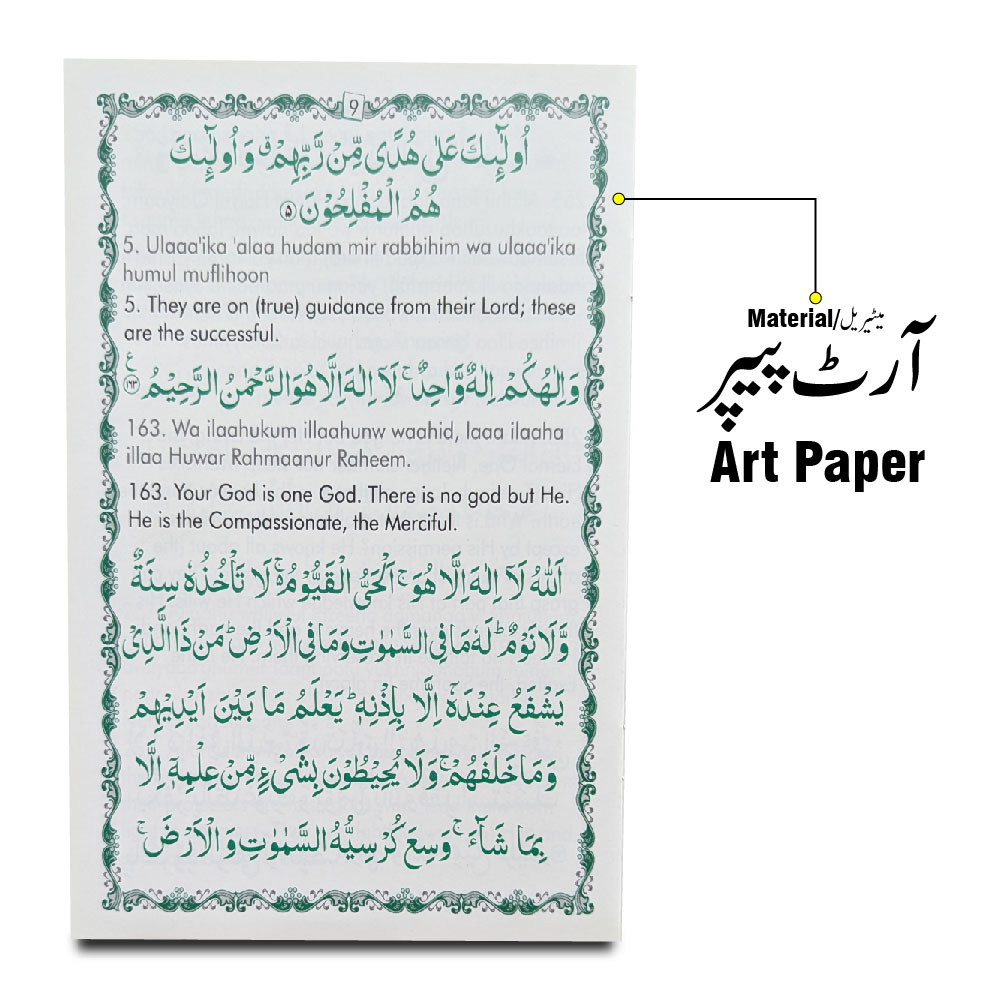 9
اُولٰٓئِكَ عَلٰى هُدًى مِّنْ رَّبِّهِمْ ۗ وَاُولٰٓئِكَ
هُمُ الْمُفْلِحُوْنَ ۵
5. Ulaaa'ika 'alaa hudam mir rabbihim wa ulaaa'ika
humul muflihoon
5. They are on (true) guidance from their Lord; these
are the successful.
وَاِلٰهُكُمْ اِلٰهٌ وَّاحِدٌ ۚ لَاۤ اِلٰهَ اِلَّا هُوَ الرَّحْمٰنُ الرَّحِيْمُ ۱۶۳ ع
163. Wa ilaahukum illaahunw waahid, laaa ilaaha
illaa Huwar Rahmaanur Raheem.
163. Your God is one God. There is no god but He.
He is the Compassionate, the Merciful.
اَللّٰهُ لَاۤ اِلٰهَ اِلَّا هُوَ ۚ اَلْحَىُّ الْقَيُّوْمُ ۚ لَا تَاْخُذُهٗ سِنَةٌ
وَّلَا نَوْمٌ ؕ لَهٗ مَا فِى السَّمٰوٰتِ وَمَا فِى الْاَرْضِ ؕ مَنْ ذَا الَّذِىْ
يَشْفَعُ عِنْدَهٗۤ اِلَّا بِاِذْنِهٖ ؕ يَعْلَمُ مَا بَيْنَ اَيْدِيْهِمْ
وَمَا خَلْفَهُمْ ۚ وَلَا يُحِيْطُوْنَ بِشَىْءٍ مِّنْ عِلْمِهٖۤ اِلَّا
بِمَا شَآءَ ۚ وَسِعَ كُرْسِيُّهُ السَّمٰوٰتِ وَالْاَرْضَ ۚ
Material/میٹیریل
آرٹ پیپر
Art Paper